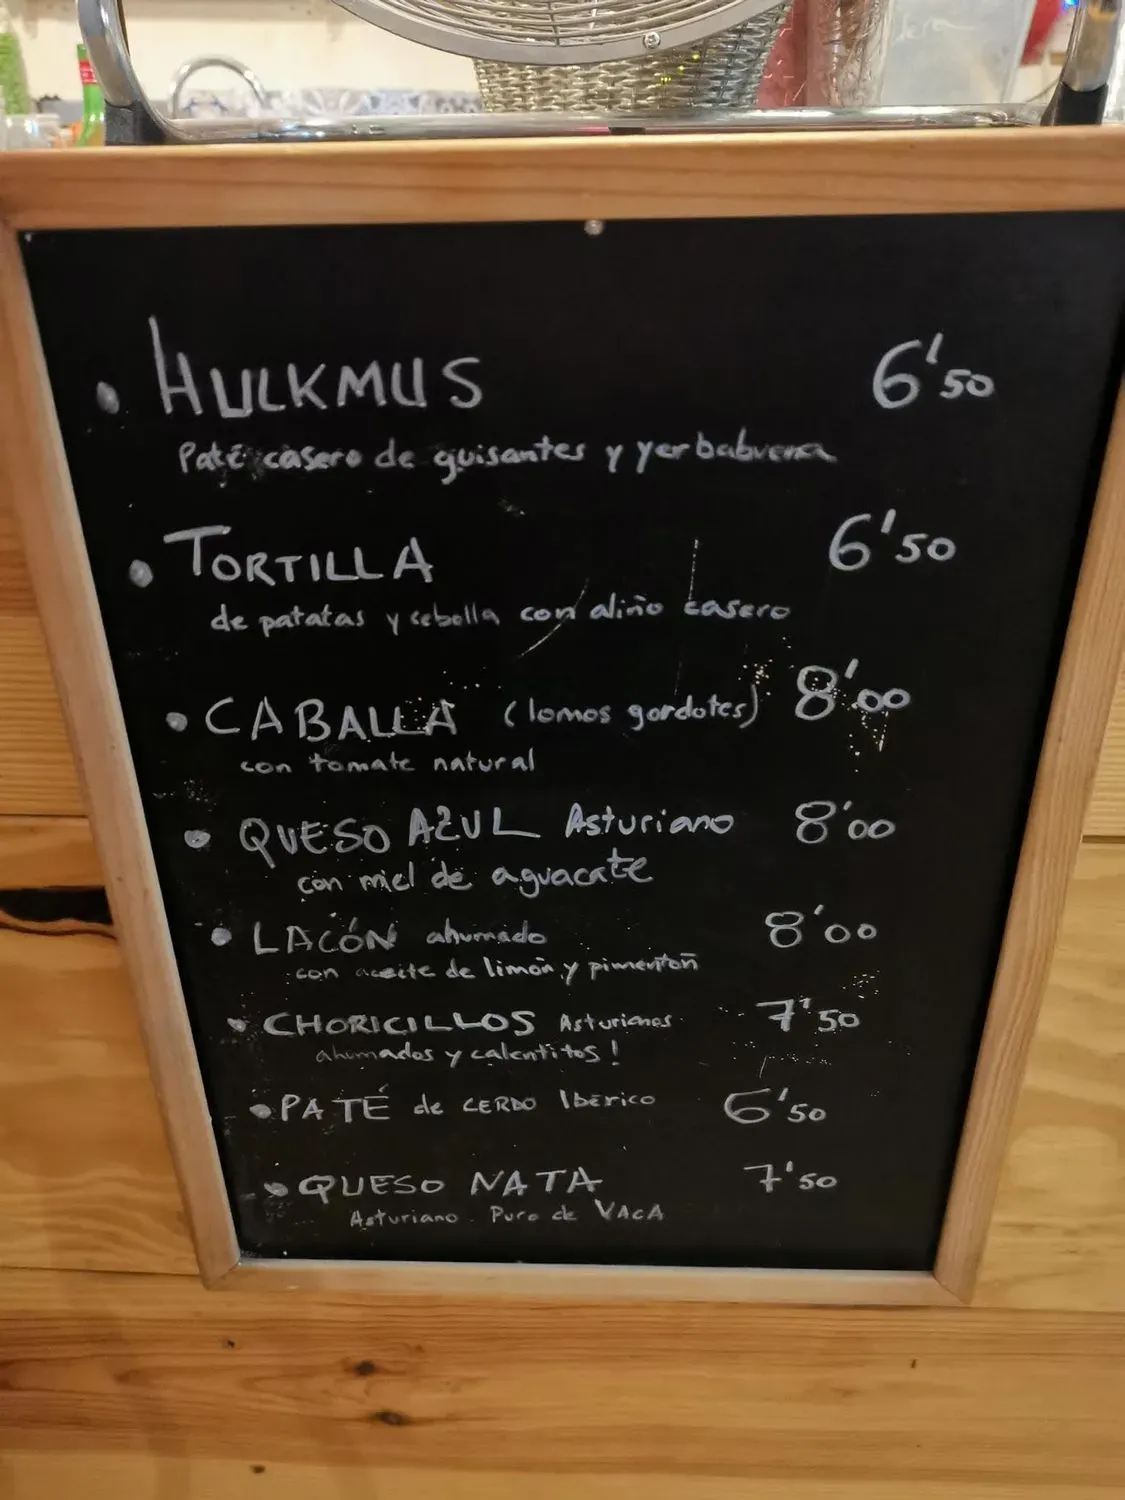 • HULKMUS 6'50
Paté casero de guisantes y yerbabuena
• TORTILLA 6'50
de patatas y cebolla con aliño casero
• CABALLA (lomos gordotes) 8'00
con tomate natural
• QUESO AZUL Asturiano 8'00
con miel de aguacate
• LACÓN ahumado 8'00
con aceite de limón y pimentón
• CHORICILLOS Asturianos 7'50
ahumados y calentitos!
• PATÉ de CERDO Ibérico 6'50
• QUESO NATA 7'50
Asturiano. Puro de VACA